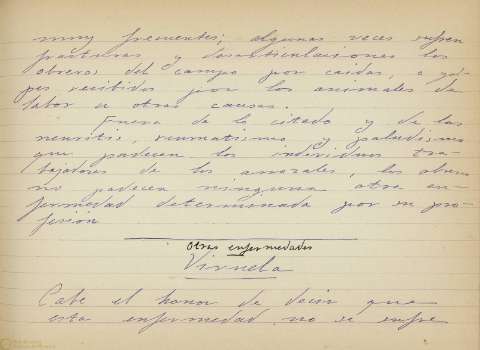 muy frecuentes; algunas veces sufren
fracturas y desarticulaciones los
obreros del campo por caidas, o gol-
pes recibidos por los animales de
labor u otras causas.
Fuera de lo citado y de las
neuritis, reumatismo y paludismo
que padecen los individuos tra-
bajadores de los arrozales, los obreros
no padecen ninguna otra en-
fermedad determinada por su pro-
fesión
Otras enfermedades
Viruela
Cabe el honor de decir que
esta enfermedad no se sufre